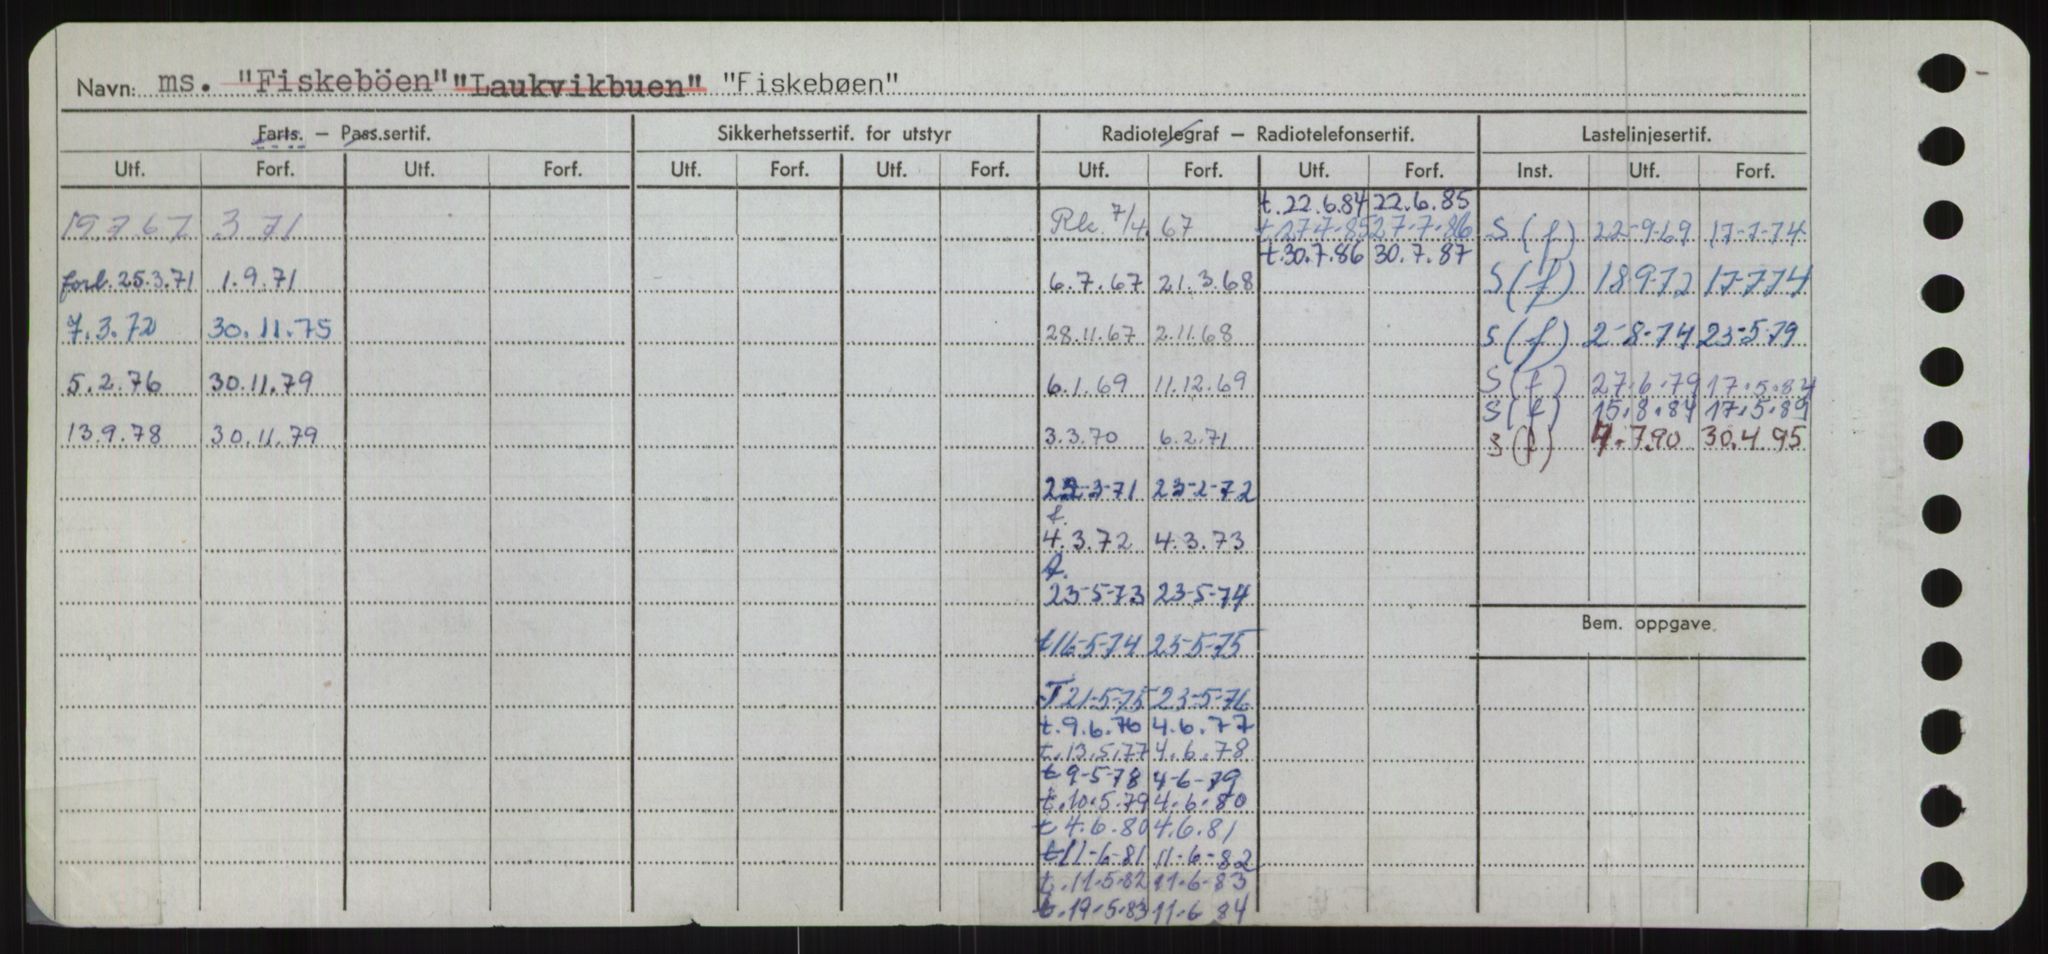 Navn: ms. "Fiskeböen" "Laukvikbuen" "Fiskebøen"
Farts. – Pass.sertif. Sikkerhetssertif. for utstyr Radiotelegraf – Radiotelefonsertif. Lastelinjesertif.
Utf. Forf. Utf. Forf. Utf. Forf. Utf. Forf. Utf. Forf. Utf. Forf. Inst. Utf. Forf.
t. 22.6.84 22.6.85
19.7.67 3.71 7/4. 67 t 27-7-85 27-7-86 S (f) 22-9-69 17-7-74
t. 30.7.86 30.7.87
forl. 25.3.71 1.9.71 6.7.67 21.3.68 S (f) 18-9-72 17-7-74
7.3.72 30.11.75 28.11.67 2.11.68 S (f) 2-8-74 23-5-79
5.2.76 30.11.79 6.1.69 11.12.69 S (f) 27.6.79 17.5.84
S (f) 15.8.84 17.5.89
13.9.78 30.11.79 3.3.70 6.2.71 S (f) 4.7.90 30.4.95
3-71 23-2-72
t.
4.3.72 4.3.73
t.
23-5-73 23-5-74
Bem. oppgave
t 16-5-74 23-5-75
T 21-5-75 23-5-76
t. 9.6.76 4.6.77
t. 13.5.77 4.6.78
t 9-5-78 4-6-79
t. 10.5.79 4.6.80
t 4.6.80 4.6.81
t 11-6-81 11-6-82
t. 11-5-82 11-6-83
t. 19.5.83 11.6 84